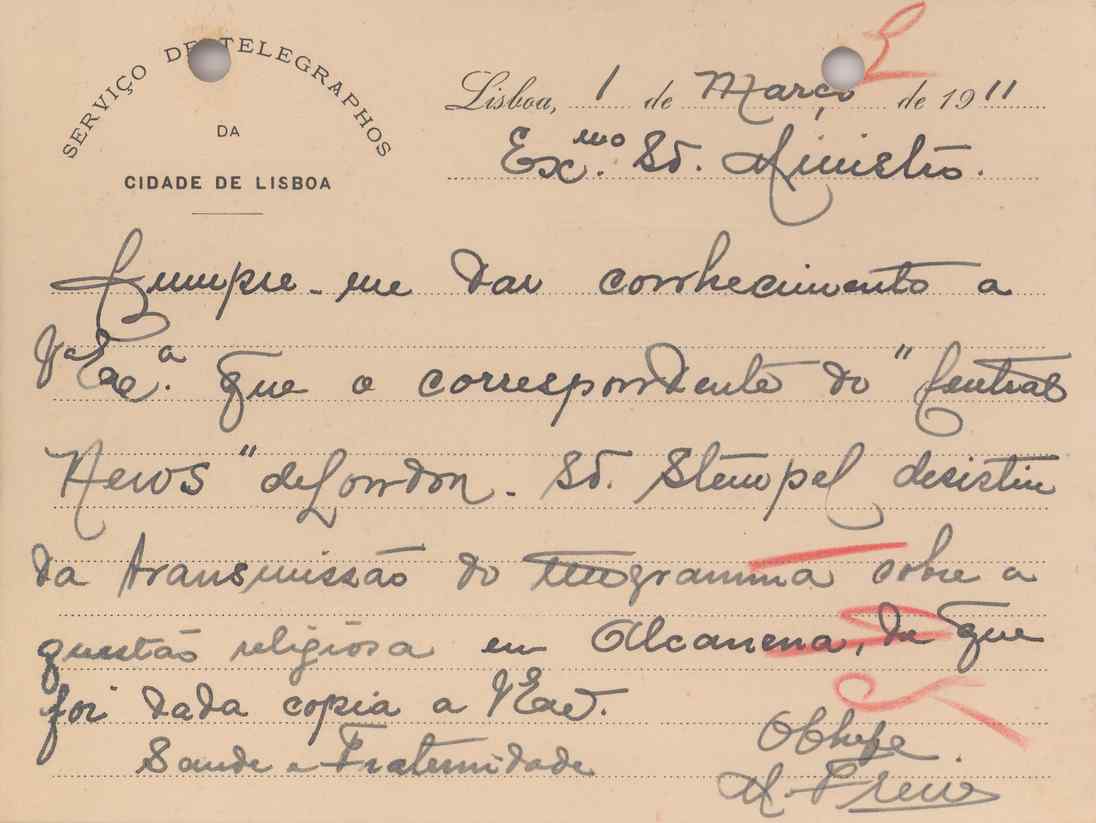 SERVIÇO DE TELEGRAPHOS
DA
CIDADE DE LISBOA
Lisboa, 1 de Março de 1911
Ex.mo Sr. Ministro.
Cumpre-me dar conhecimento a
V.a Exc.a que o correspondente do "Central
News" de London. Sr. Stempel desistiu
da transmissão do telegramma sobre a
questão religiosa em Alcanena, de que
foi dada copia a V. Exc.
Saude e Fraternidade
O Chefe.